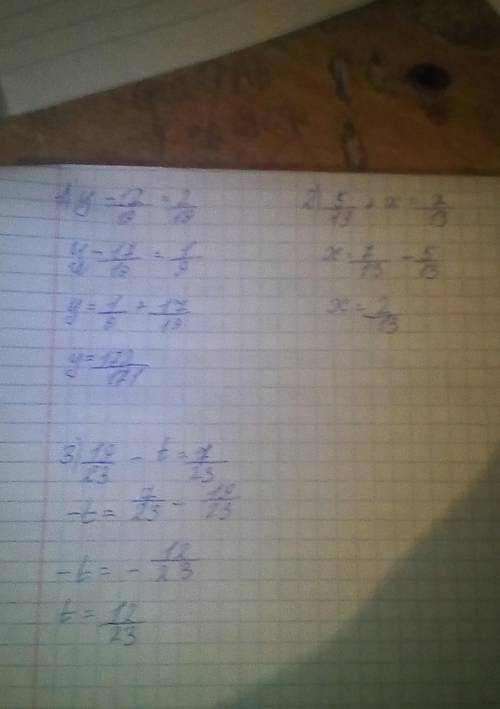 y - 17/19 = 2/19
y - 17/19 = 1/9
y = 1/9 + 17/19
y = 172/171
2) 5/13 + x = 7/13
x = 7/13 - 5/13
x = 2/13
3) 19/23 - t = 7/23
-t = 7/23 - 19/23
-t = - 12/23
t = 12/23